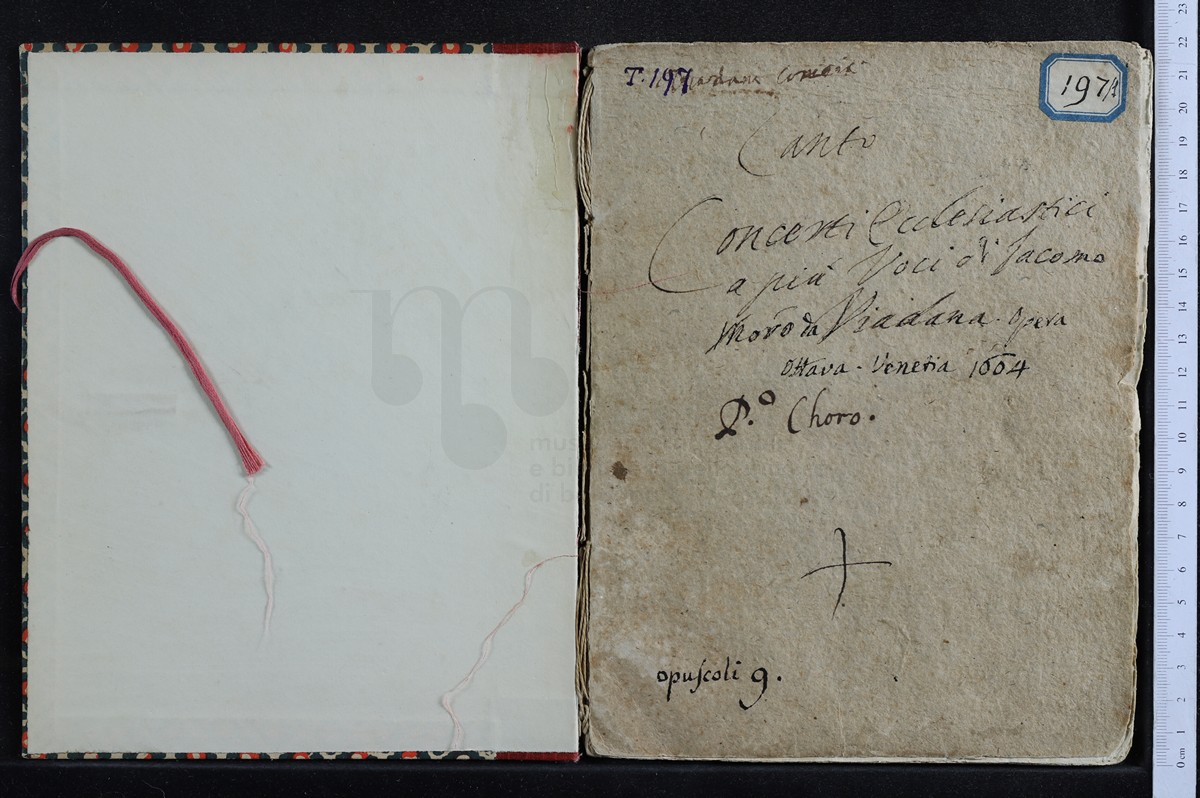 T.197
197/1
Canto
Concerti Ecclesiastici
a più Voci di Jacomo
Moro da Viadana. Opera
Ottava. Venetia 1604
P.º Choro.
opuſcoli 9.
mus
e bi
di b
23
22
21
20
19
18
17
16
15
14
13
12
11
10
9
8
7
6
5
4
3
2
1
0 cm